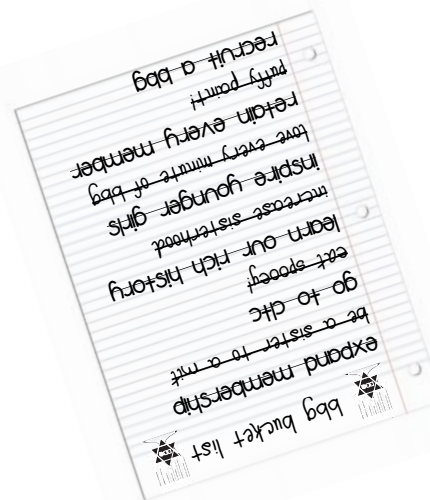 bbg bucket list
expand membership
be a sister to a mit
go to cltc
eat spooey!
learn our rich history
increase sisterhood
inspire younger girls
love every minute of bbg
retain every member
puffy paint!
recruit a bbg